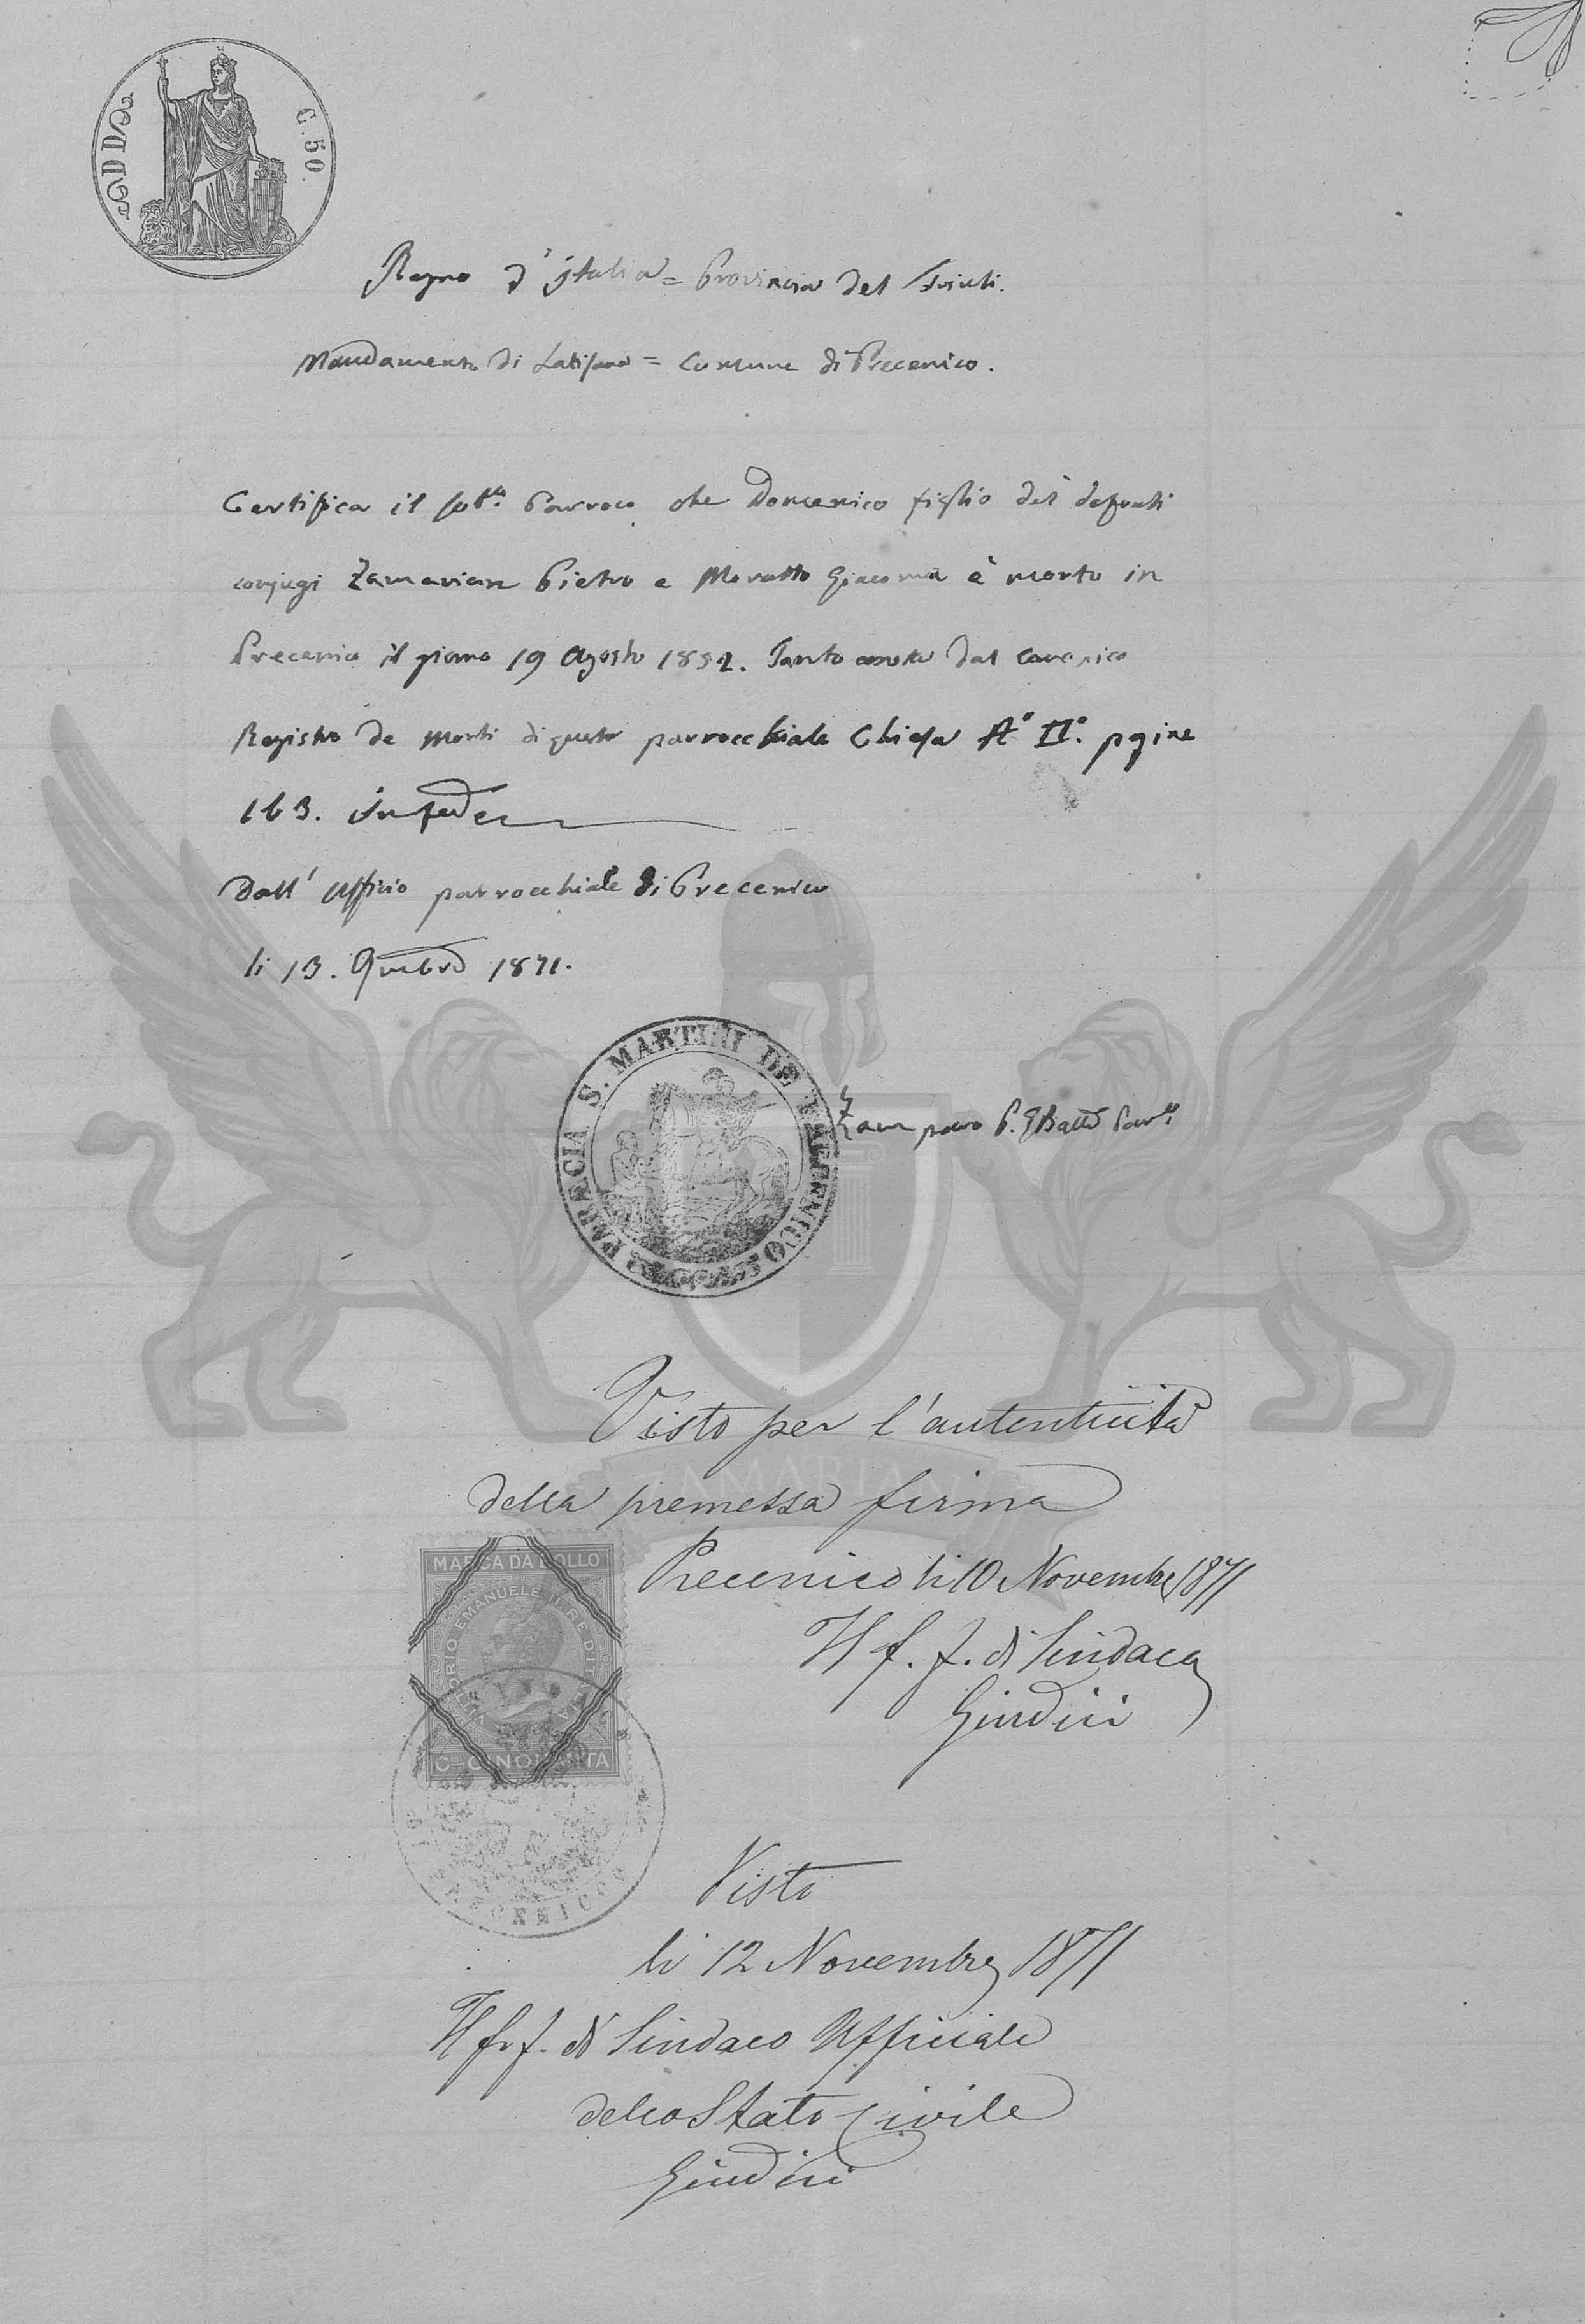 C. 50.
Regno d'Italia = Provincia del Friuli.
Mandamento di Latisana = Comune di Precenico.
Certifica il sott.º Parroco che Domenico figlio dei defonti
conjugi Zamarian Pietro e Moratto Giacoma è morto in
Precenico il giorno 19 Agosto 1852. Tanto consta dal canonico
Registro de Morti di questa parrocchiale Chiesa Aº IIº. pgine
163. In fede
Dall' Ufficio parrocchiale di Precenico
li 13. 9mbre 1871.
PAROCIA S. MARTINI DE PRECENICO
Zamparo P. GBatta Par.co
Visto per l'autenticità
della premessa firma
MARCA DA BOLLO
VITTORIO EMANUELE II RE D'ITALIA
Cmi CINQUANTA
Precenico li 10 Novembre 1871
Il f. f. di Sindaco
Giudici
PRECENICCO
Visto
li 12 Novembre 1871
Il f. f. di Sindaco Ufficiale
dello Stato Civile
Giudici